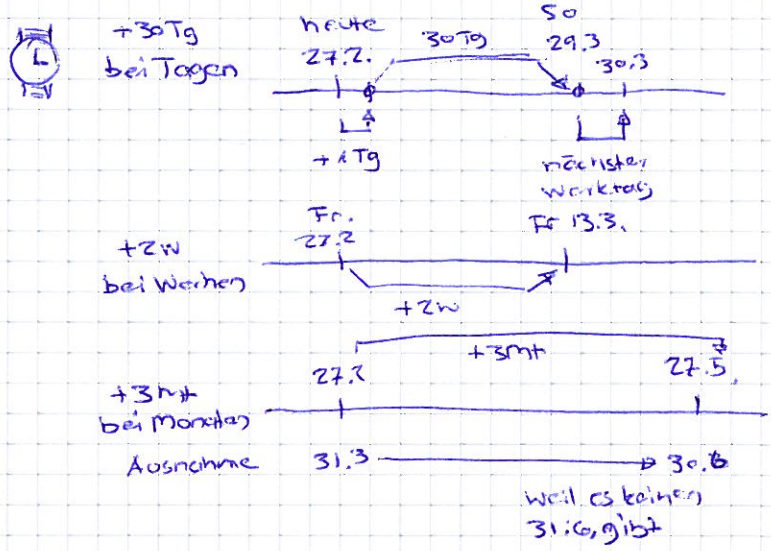 L
+30Tg
bei Tagen
heute
27.2.
30Tg
So
29.3
30.3
+1Tg
nächster
Werktag
+2W
bei Wochen
Fr.
27.2
Fr 13.3.
+2W
+3Mt
bei Monaten
27.2
+3Mt
27.5.
Ausnahme
31.3
30.6
weil es keinen
31.6. gibt